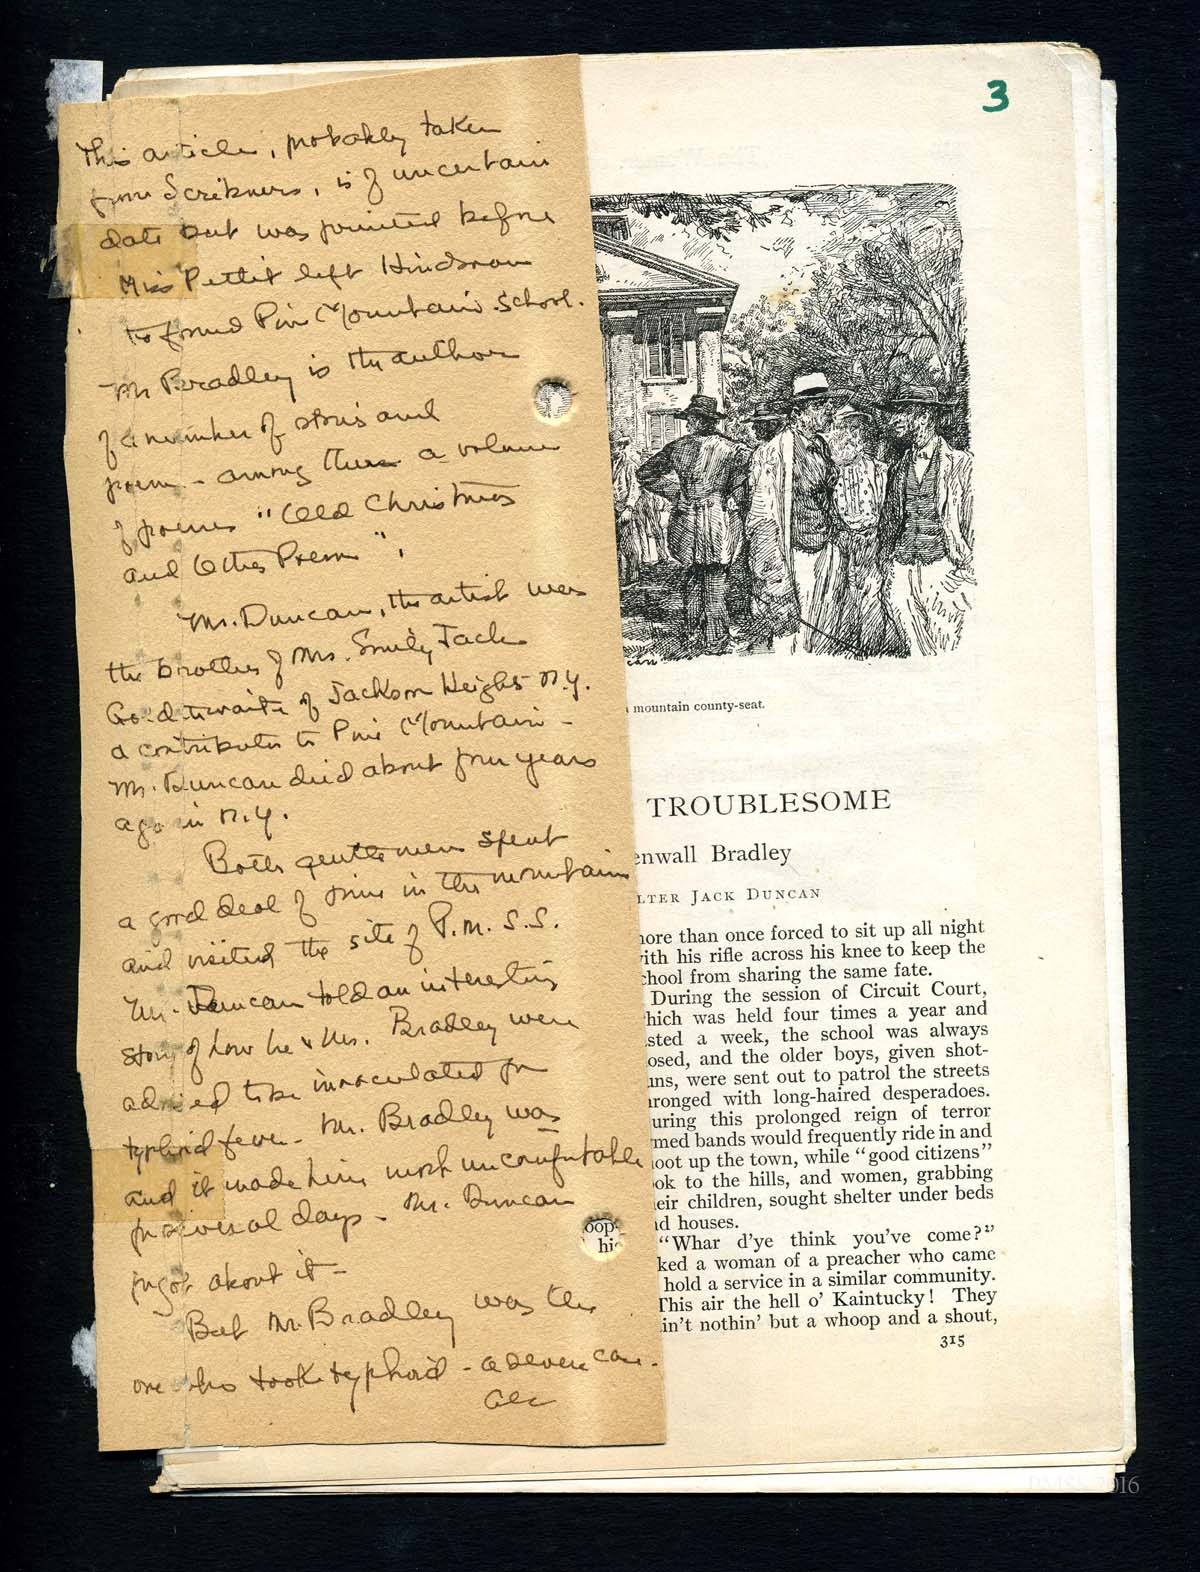 3
This article, probably taken
from Scribners, is of uncertain
date but was printed before
Miss Pettit left Hindman
to found Pine Mountain School.
Mr Bradley is the author
of a number of stories and
poems - among them a volume
of poems "Old Christmas
and Other Poems".
Mr. Duncan, the artist was
the brother of Mrs. Emily Jack
of Jackson Heights N.Y.
a contributor to Pine Mountain -
Mr. Duncan died about four years
ago in N.Y.
Both gentlemen spent
a good deal of time in the mountains
and visited the site of P.M.S.S.
Mr. Duncan told an interesting
story of how he & Mr. Bradley were
advised to be innoculated for
typhoid fever - Mr. Bradley was
and it made him most uncomfortable
for several days - Mr. Duncan
forgot about it -
But Mr. Bradley was the
one who took typhoid - a severe case.
mountain county-seat.
TROUBLESOME
enwall Bradley
LTER JACK DUNCAN
more than once forced to sit up all night
ith his rifle across his knee to keep the
chool from sharing the same fate.
During the session of Circuit Court,
hich was held four times a year and
sted a week, the school was always
osed, and the older boys, given shot-
uns, were sent out to patrol the streets
hronged with long-haired desperadoes.
uring this prolonged reign of terror
med bands would frequently ride in and
oot up the town, while "good citizens"
ok to the hills, and women, grabbing
eir children, sought shelter under beds
oop- nd houses.
his "Whar d'ye think you've come?"
ked a woman of a preacher who came
hold a service in a similar community.
This air the hell o' Kaintucky! They
in't nothin' but a whoop and a shout,
315